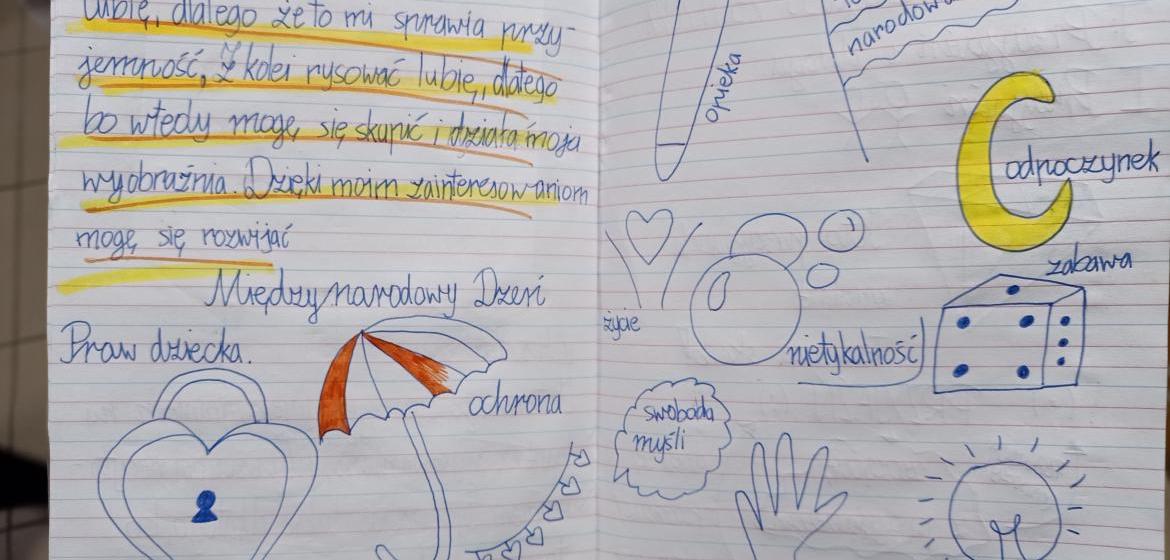 lubię, dlatego że to mi sprawia przy-
jemność, Z kolei rysować lubię, dlatego
bo wtedy mogę się skupić i działa moja
wyobraźnia. Dzięki moim zainteresowaniom
mogę się rozwijać
Międzynarodowy Dzień
Praw dziecka.
ochrona
opieka
narodowa
odpoczynek
zabawa
życie
nietykalność
swoboda
myśli